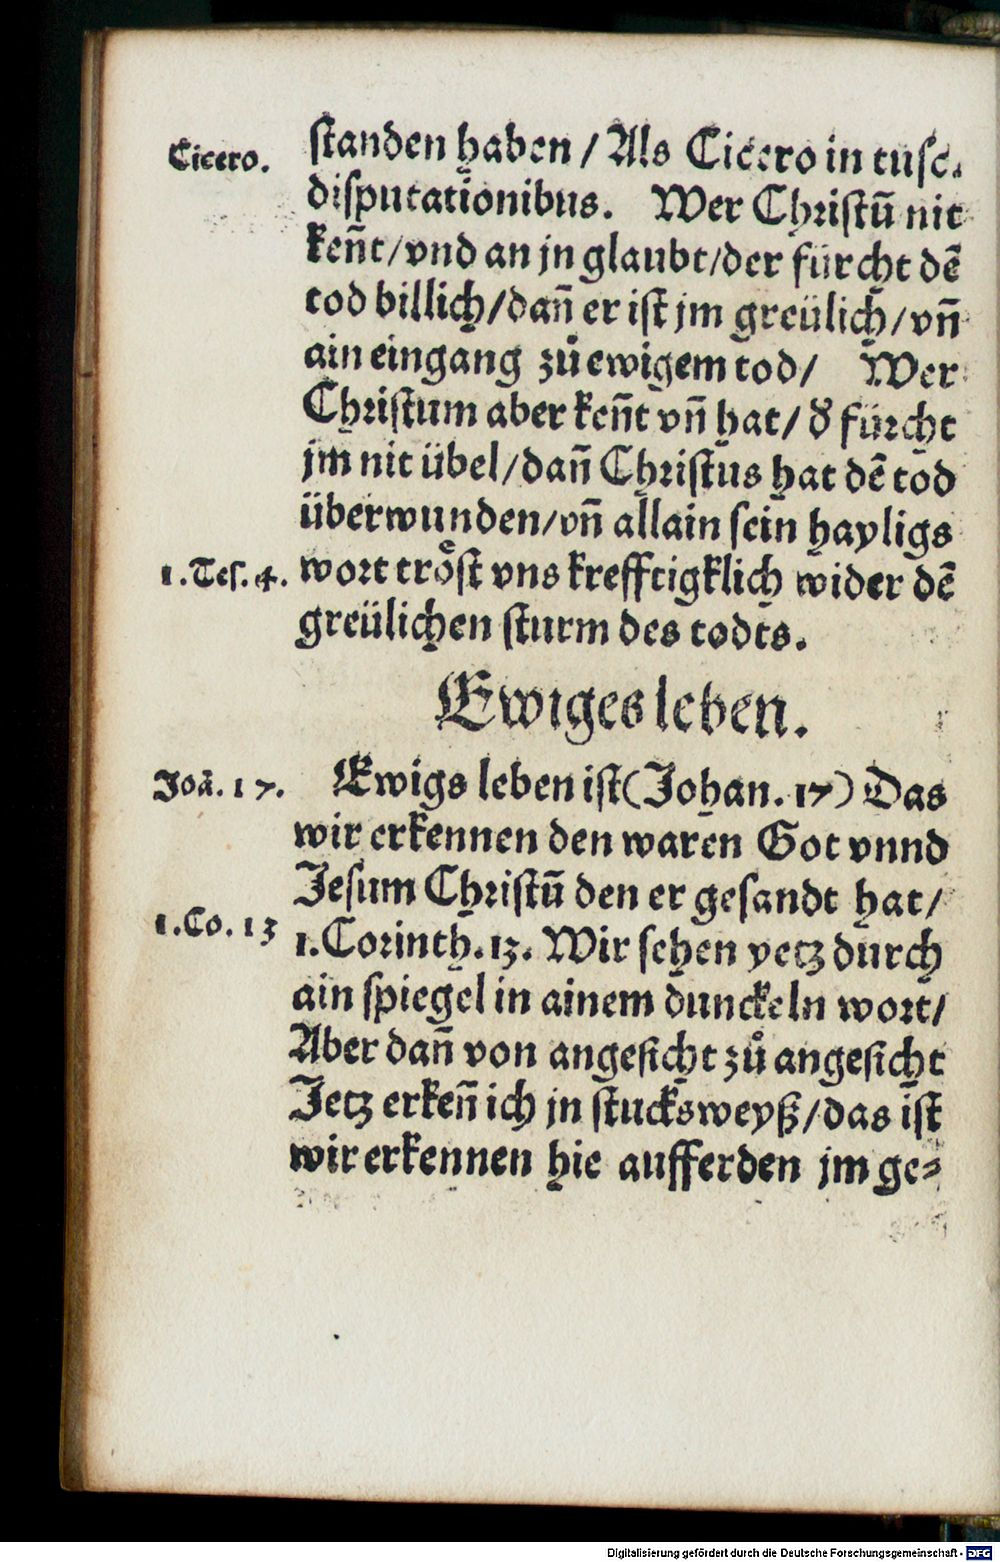 Cicero.
standen haben / Als Cicero in tusc.
disputationibus. Wer Christū nit
keñt/vnd an jn glaubt/der fürcht dē
tod billich/dañ er ist jm greülich/vñ
ain eingang zů ewigem tod/ Wer
Christum aber keñt vñ hat/ d̕ fürcht
jm nit übel/dañ Christus hat dē tod
überwunden/vñ allain sein hayligs
1.Tes.4.
wort trȯͤst vns krefftigklich wider dē
greülichen sturm des todts.
Ewiges leben.
Joā.17.
Ewigs leben ist(Johan.17) Das
wir erkennen den waren Got vnnd
Jesum Christū den er gesandt hat/
1.Co.13
1.Corinth.13. Wir sehen yetz durch
ain spiegel in ainem dunckeln wort/
Aber dañ von angesicht zů angesicht
Jetz erkeñ ich jn stucksweyß/das ist
wir erkennen hie aufferden jm ge⸗
Digitalisierung gefördert durch die Deutsche Forschungsgemeinschaft - DFG